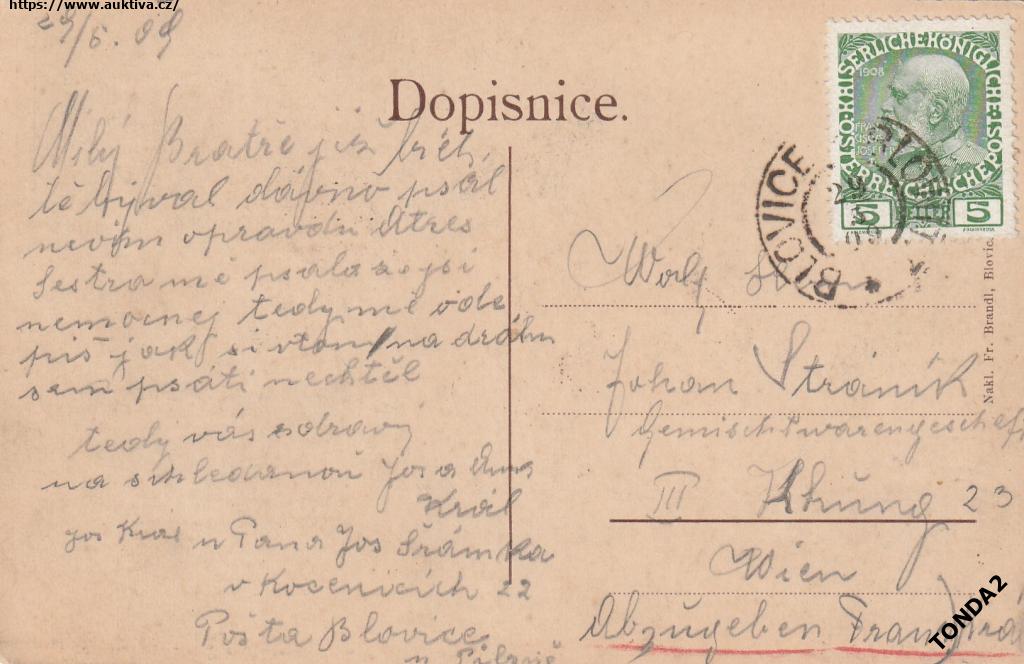 https://www.auktiva.cz/
29/5. 09
Dopisnice.
Milý Bratře již
tě býval dávno psal
nevím opravdu Atres
Sestra mě psala že jsi
nemocnej tedy mě ode
piš jak si v tom na dráhu
sem psáti nechtěl
tedy vás zdravy
na schledanou Jos a Anna
Král
Jos Kral u Pana Jos Šrámka
v Kocenicích 22
Pošta Blovice
u Pilzně
1908
KAISERLICHE KÖNIGLICHE
ÖSTERREICHISCHE POST
5 5
BLOVICE
29
5
09
Johan Stránik
Gemischtwarengeschef
III 23
Wien
Abzugeben
Nakl. Fr. Brandl, Blovic
TONDA2